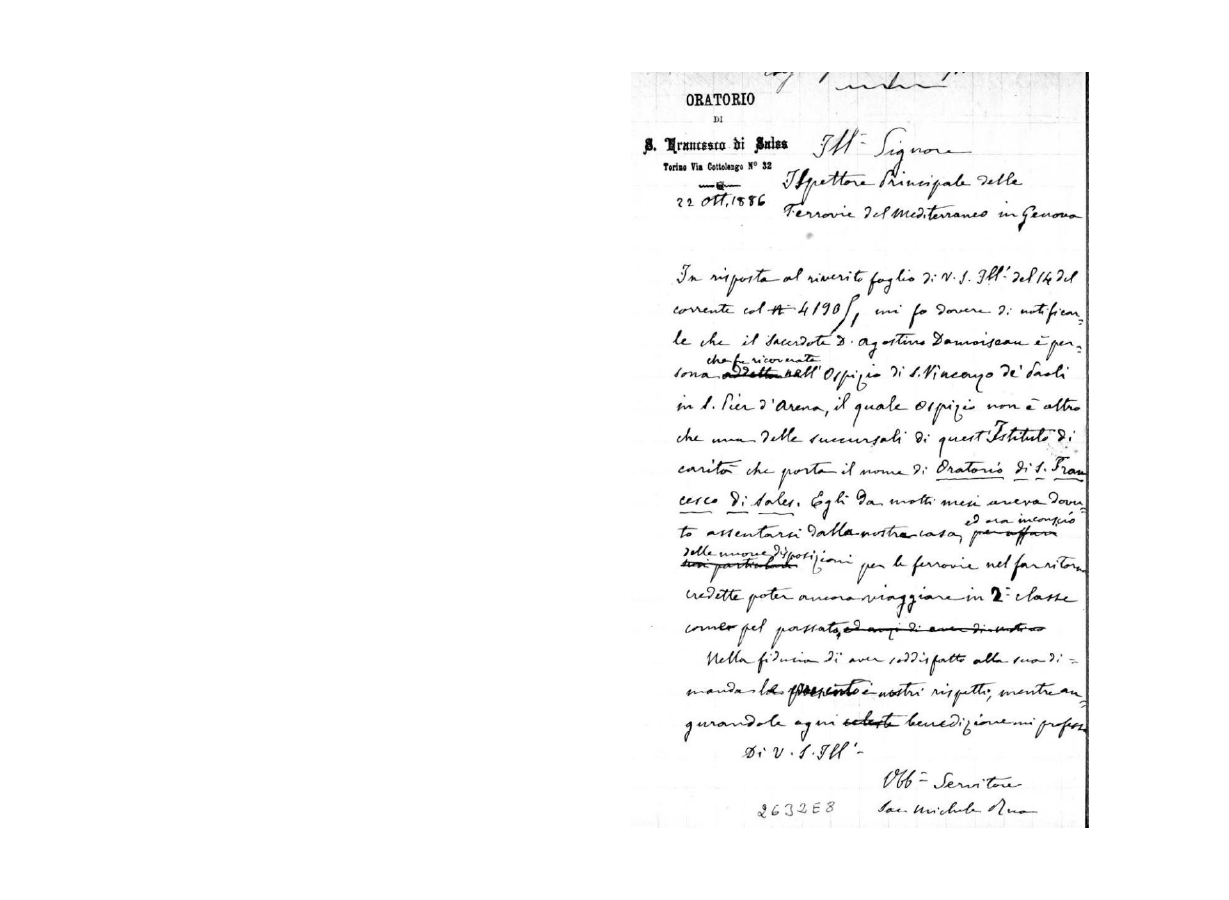 ORATORIO
DI
S. Francesco di Sales
Torino Via Cottolengo N° 32
22 Ott. 1886
Ill.mo Signore
Ispettore Principale delle
Ferrovie del Mediterraneo in Genova
In risposta al riverito foglio di V. S. Ill.ma del 14 del
corrente col N 4190/, mi fo dovere di notificar=
le che il Sacerdote D. Agostino Damoiseau è per=
che fu ricoverato
sona addetta nell'Ospizio di S. Vincenzo de' Paoli
in S. Pier d'Arena, il quale Ospizio non è altro
che una delle succursali di quest'Istituto di
carità che porta il nome di Oratorio di S. Fran
cesco di Sales. Egli da molti mesi aveva dovu-
ed ora inconscio
to assentarsi dalla nostra casa, per affari
delle nuove disposizioni per le ferrovie nel far ritorno
suoi particolari
credette poter ancora viaggiare in 2a classe
come pel passato, ed anzi di aver
Nella fiducia di aver soddisfatto alla sua di=
manda le presento i nostri rispetti, mentre au=
gurandole ogni celeste benedizione mi professo
Di V. S. Ill.ma
Obb.mo Servitore
Sac. Michele Rua
2632E8